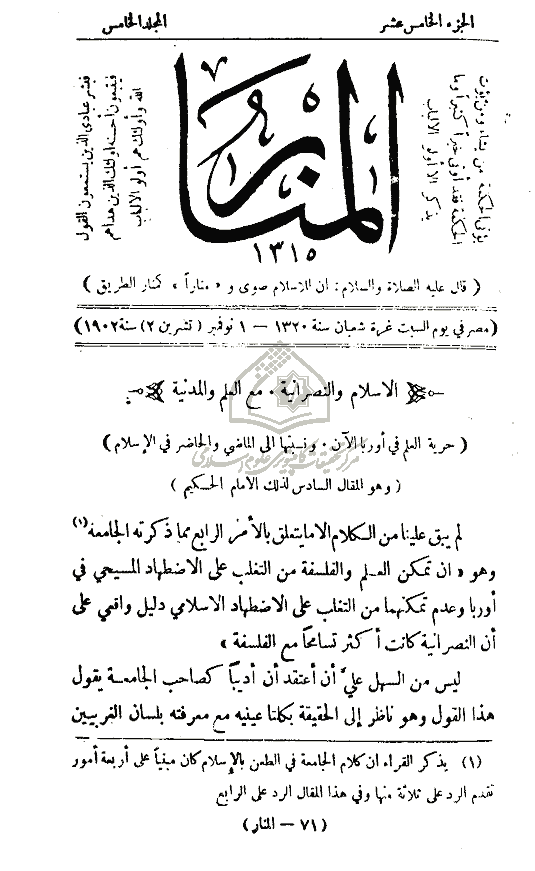 الجزء الخامس عشر
المجلد الخامس
يؤتي الحكمة من يشاء ومن يؤت
الحكمة فقد أوتي خيراً كثيراً وما
يذكر إلا أولو الالباب
المنار
١٣١٥
فبشر عبادي الذين يستمعون القول
فيتبعون أحسنه أولئك الذين هداهم
الله وأولئك هم أولو الالباب
( قال عليه الصلاة والسلام : ان للاسلام صوى و « مناراً » كمنار الطريق )
( مصر في يوم السبت غرة شعبان سنة ١٣٢٠ — ١ نوفمبر ( تشرين ٢ ) سنة ١٩٠٢ )
الاسلام والنصرانية ٠ مع العلم والمدنية
( حرية العلم في أوربا الآن ٠ ونسبتها الى الماضي والحاضر في الإسلام )
مركز تحقيقات كامپيوتري علوم اسلامي
( وهو المقال السادس لذلك الامام الحكيم )
لم يبق علينا من الكلام الا ما يتعلق بالأمر الرابع مما ذكرته الجامعة (١)
وهو « ان تمكن العلم والفلسفة من التغلب على الاضطهاد المسيحي في
أوربا وعدم تمكنهما من التغلب على الاضطهاد الاسلامي دليل واقعي على
أن النصرانية كانت أكثر تسامحاً مع الفلسفة »
ليس من السهل عليّ أن أعتقد أن أديباً كصاحب الجامعة يقول
هذا القول وهو ناظر إلى الحقيقة بكلتا عينيه مع معرفته بلسان الغربيين
(١) يذكر القراء ان كلام الجامعة في الطعن بالإسلام كان مبنياً على أربعة أمور
تقدم الرد على ثلاثة منها وفي هذا المقال الرد على الرابع
( ٧١ — المنار )